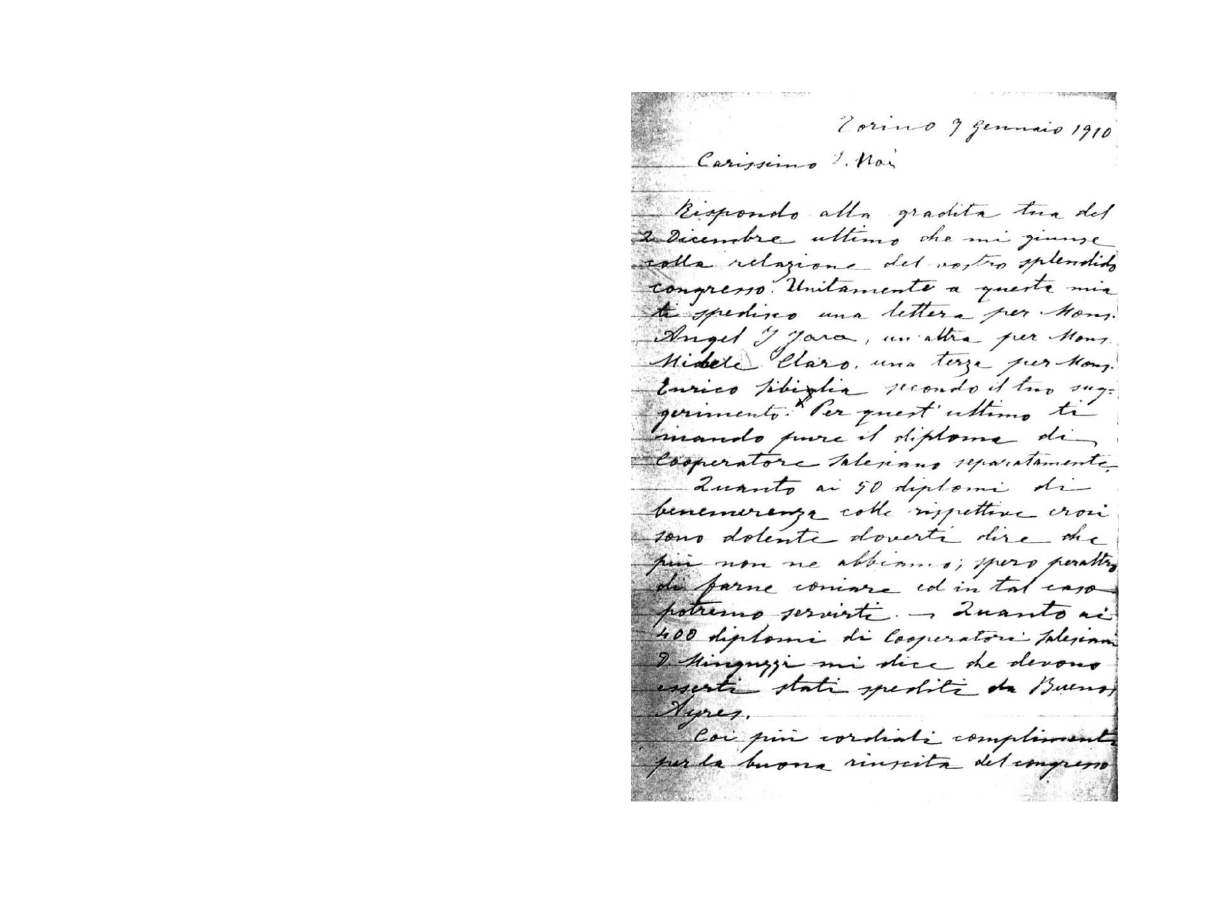 Torino 7 Gennaio 1910
Carissimo D. Nai
Rispondo alla gradita tua del
2 Dicembre ultimo che mi giunse
colla relazione del vostro splendido
congresso. Unitamente a questa mia
ti spedisco una lettera per Mons.
Angel Y Jara, un'altra per Mons.
Michele Claro, una terza per Mons.
Enrico Sibiglia secondo il tuo sug-
gerimento. Per quest'ultimo ti
mando pure il diploma di
Cooperatore Salesiano separatamente.
Quanto ai 50 diplomi di
benemerenza colle rispettive croci
sono dolente doverti dire che
più non ne abbiamo; spero peraltro
di farne coniare ed in tal caso
potremo servirti. — Quanto ai
400 diplomi di Cooperatori Salesiani
D. Minguzzi mi dice che devono
esserti stati spediti da Buenos
Ayres.
Coi più cordiali complimenti
per la buona riuscita del congresso